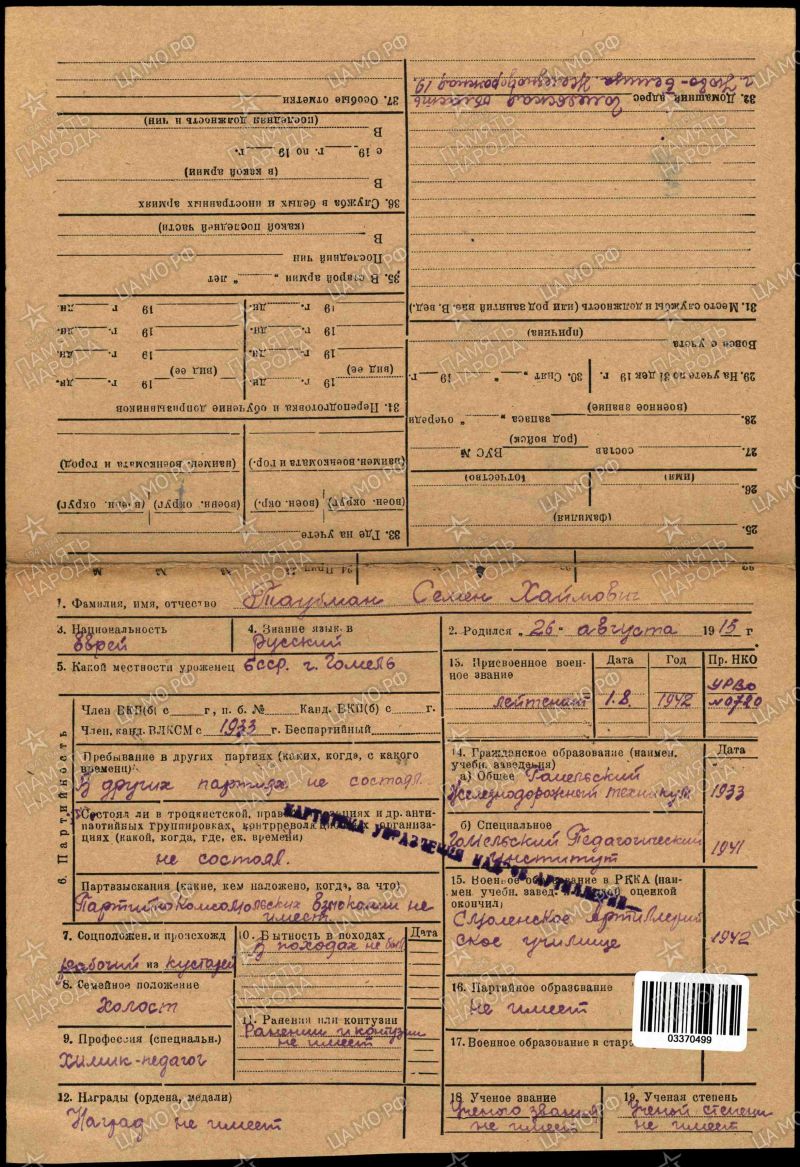 1. Фамилия, имя, отчество Таубман Семен Хаймович
3. Национальность
Еврей
4. Знание язык. в
Русский
2. Родился „26“ августа 1915 г
5. Какой местности уроженец БССР. г. Гомель
6. Партийность
Член ВКП(б) с г., п. б. № Канд. ВКП(б) с г.
Член, канд. ВЛКСМ с 1933 г. Беспартийный
Пребывание в других партиях (каких, когда, с какого
времени)
В других партиях не состоял.
Состоял ли в троцкистской, правых и др. анти-
партийных группировках, контрреволюционных организа-
циях (какой, когда, где, ск. времени)
не состоял.
Партвзыскания (какие, кем наложено, когда, за что)
Партийнокомсомольских взысканий не
имеет.
13. Присвоенное воен-
ное звание
Дата Год Пр. НКО
лейтенант 1.8. 1942 УРВО
№0720
14. Гражданское образование (наимен.
учебн. заведения)
Дата
а) Общее Гомельский
Железнодорожный техникум 1933
б) Специальное
Гомельский Педагогический
институт 1941
КАРТОТЕКА УПРАВЛЕНИЯ КАДРОВ АРТИЛЛЕРИИ
15. Военное образование в РККА (наи-
мен. учебн. завед. оценкой
окончил)
Смоленское артиллерий
ское училище 1942
7. Соцположен. и происхожд
рабочий из кустарей
8. Семейное положение
Холост
9. Профессия (специальн.)
Химик-педагог
10. Бытность в походах Дата
В походах не был
11. Ранения или контузии
Ранений и контузии
не имеет
16. Партийное образование
Не имеет
17. Военное образование в стар
03370499
12. Награды (ордена, медали)
Наград не имеет
18. Ученое звание
Ученого звания
не имеет
19. Ученая степень
Ученой степени
не имеет
25.
(фамилия)
26.
(имя) (отчество)
27. состав ВУС №
(род войск)
28. запаса „ “ очереди
(военное звание)
29. На учете по 31 дек 19 г. 30. Снят „ “ 19 г.
Вовсе с учета
(причина)
31. Место службы и должность (или род занятий наз. В. вед.)
32. Домашний адрес Гомельская область
г. Ново-Белица. Железнодорожная, 19
33. Где на учете
(военн. округ) (военн. округ) (военн. окр.) (военн. округ)
(наимен. военкомата и город) (наимен. военкомата и гор.)
34. Переподготовка и обучение допризывников
19 г. дн. 19 г. дн.
(вид ее) (вид ее)
19 г. дн. 19 г. дн.
19 г. дн. 19 г. дн.
19 г. дн. 19 г. дн.
35. В старой армии „ “ лет
Последний чин
В
(какой последней части)
36. Служба в белых и иностранных армиях
В
(в какой армии)
с 19 г. по 19 г.
В
(последняя должность и чин)
37. Особые отметки
ПАМЯТЬ НАРОДА
ЦАМО.РФ